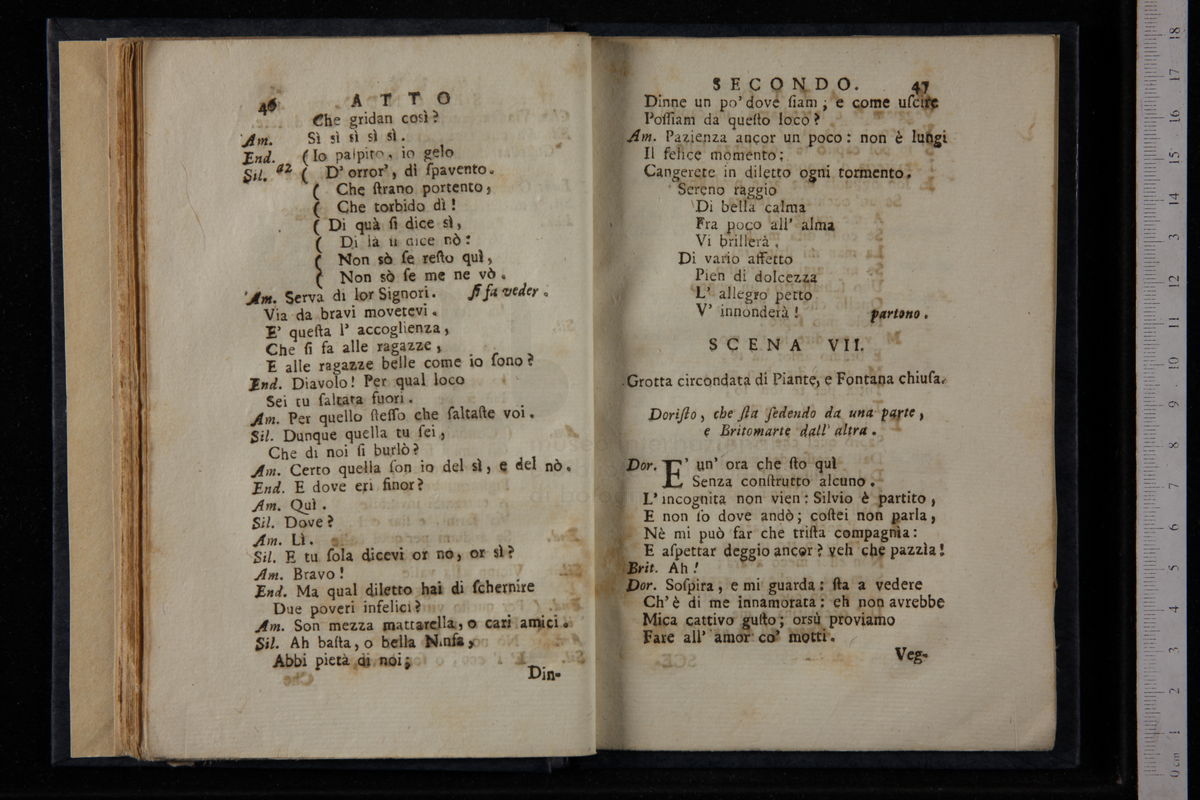 46 ATTO
Che gridan così?
Am. Sì sì sì sì sì.
End. (Io palpito, io gelo
Sil. a2 ( D' orror', di ſpavento.
( Che ſtrano portento,
( Che torbido dì!
( Di quà ſi dice sì,
( Di là ſi dice nò:
( Non sò ſe reſto quì,
( Non sò ſe me ne vò.
Am. Serva di lor Signori. ſi fa veder.
Via da bravi movetevi.
E' queſta l' accoglienza,
Che ſi fa alle ragazze,
E alle ragazze belle come io ſono?
End. Diavolo! Per qual loco
Sei tu ſaltata fuori.
Am. Per quello ſteſſo che ſaltaſte voi.
Sil. Dunque quella tu ſei,
Che di noi ſi burlò?
Am. Certo quella ſon io del sì, e del nò.
End. E dove eri finor?
Am. Quì.
Sil. Dove?
Am. Lì.
Sil. E tu ſola dicevi or no, or sì?
Am. Bravo!
End. Ma qual diletto hai di ſchernire
Due poveri infelici?
Am. Son mezza mattarella, o cari amici.
Sil. Ah baſta, o bella Ninfa,
Abbi pietà di noi;
Din-
SECONDO. 47
Dinne un po' dove ſiam; e come uſcire
Poſſiam da queſto loco?
Am. Pazienza ancor un poco: non è lungi
Il felice momento;
Cangerete in diletto ogni tormento.
Sereno raggio
Di bella calma
Fra poco all' alma
Vi brillerà,
Di vario affetto
Pien di dolcezza
L' allegro petto
V' innonderà! partono.
SCENA VII.
Grotta circondata di Piante, e Fontana chiuſa.
Doriſto, che ſta ſedendo da una parte,
e Britomarte dall' altra.
Dor. E' un' ora che ſto quì
Senza conſtrutto alcuno.
L' incognita non vien: Silvio è partito,
E non ſo dove andò; coſtei non parla,
Nè mi può far che triſta compagnìa:
E aſpettar deggio ancor? veh che pazzìa!
Brit. Ah!
Dor. Soſpira, e mi guarda: ſta a vedere
Ch' è di me innamorata: eh non avrebbe
Mica cattivo guſto; orsù proviamo
Fare all' amor co' motti.
Veg-